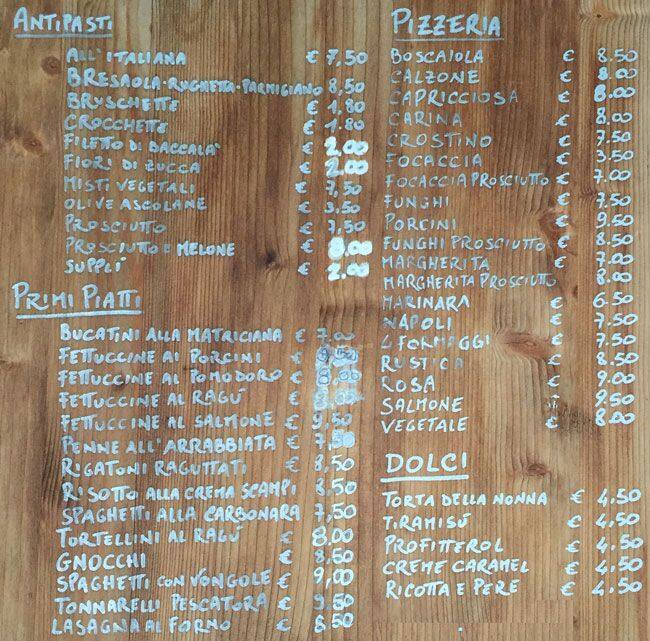 ANTIPASTI
ALL'ITALIANA € 7,50
BRESAOLA-RUGHETTA-PARMIGIANO 8,50
BRUSCHETTE € 1.80
CROCCHETTE € 1.80
FILETTO DI BACCALA' € 2.00
FIORI DI ZUCCA € 2.00
MISTI VEGETALI € 7,50
OLIVE ASCOLANE € 3,50
PROSCIUTTO € 7,50
PROSCIUTTO E MELONE € 8.00
SUPPLÍ € 2.00
PRIMI PIATTI
BUCATINI ALLA MATRICIANA € 7,00
FETTUCCINE AI PORCINI € 9,50
FETTUCCINE AL POMODORO €
FETTUCCINE AL RAGÚ €
FETTUCCINE AL SALMONE € 9,50
PENNE ALL'ARRABBIATA € 7,50
RIGATONI RAGUTTATI € 8,50
RISOTTO ALLA CREMA SCAMPI 8,50
SPAGHETTI ALLA CARBONARA 7,50
TORTELLINI AL RAGÚ € 8.00
GNOCCHI € 8,50
SPAGHETTI CON VONGOLE € 9,00
TONNARELLI PESCATORA € 9,50
LASAGNA AL FORNO € 8,50
PIZZERIA
BOSCAIOLA € 8.50
CALZONE € 8.00
CAPRICCIOSA € 8.00
CARINA € 8.00
CROSTINO € 7.50
FOCACCIA € 3.50
FOCACCIA PROSCIUTTO € 7.00
FUNGHI € 7.50
PORCINI € 9.50
FUNGHI PROSCIUTTO € 8.50
MARGHERITA € 7.00
MARGHERITA PROSCIUTTO 8.00
MARINARA € 6.50
NAPOLI € 7.50
4 FORMAGGI € 7.50
RUSTICA € 8.50
ROSA € 9.00
SALMONE € 9.50
VEGETALE € 8.00
DOLCI
TORTA DELLA NONNA € 4.50
TIRAMISÚ € 4.50
PROFITTEROL € 4.50
CREME CARAMEL € 4.50
RICOTTA E PERE € 4.50